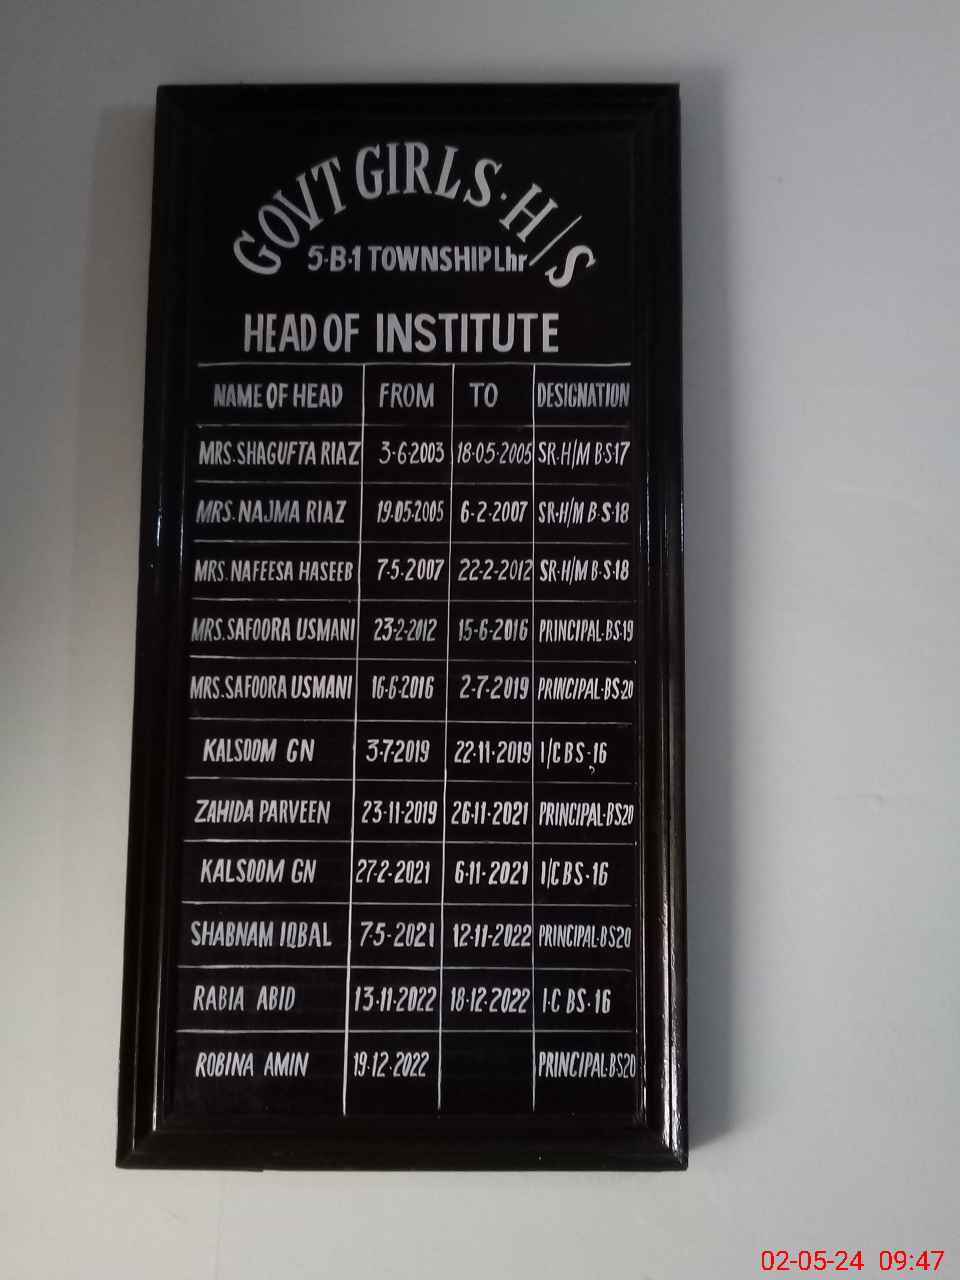 GOVT GIRLS·H/S
5-B-1 TOWNSHIP Lhr
HEAD OF INSTITUTE
NAME OF HEAD FROM TO DESIGNATION
MRS. SHAGUFTA RIAZ 3-6-2003 18-05-2005 SR-H/M B-S-17
MRS. NAJMA RIAZ 19-05-2005 6-2-2007 SR-H/M B-S-18
MRS. NAFEESA HASEEB 7-5-2007 22-2-2012 SR-H/M B-S-18
MRS. SAFOORA USMANI 23-2-2012 15-6-2016 PRINCIPAL-BS-19
MRS. SAFOORA USMANI 16-6-2016 2-7-2019 PRINCIPAL-BS-20
KALSOOM GN 3-7-2019 22-11-2019 I/C BS-16
ZAHIDA PARVEEN 23-11-2019 26-11-2021 PRINCIPAL-BS20
KALSOOM GN 27-2-2021 6-11-2021 I/C BS-16
SHABNAM IQBAL 7-5-2021 12-11-2022 PRINCIPAL-BS20
RABIA ABID 13-11-2022 18-12-2022 I-C BS-16
ROBINA AMIN 19-12-2022 PRINCIPAL-BS20
02-05-24 09:47